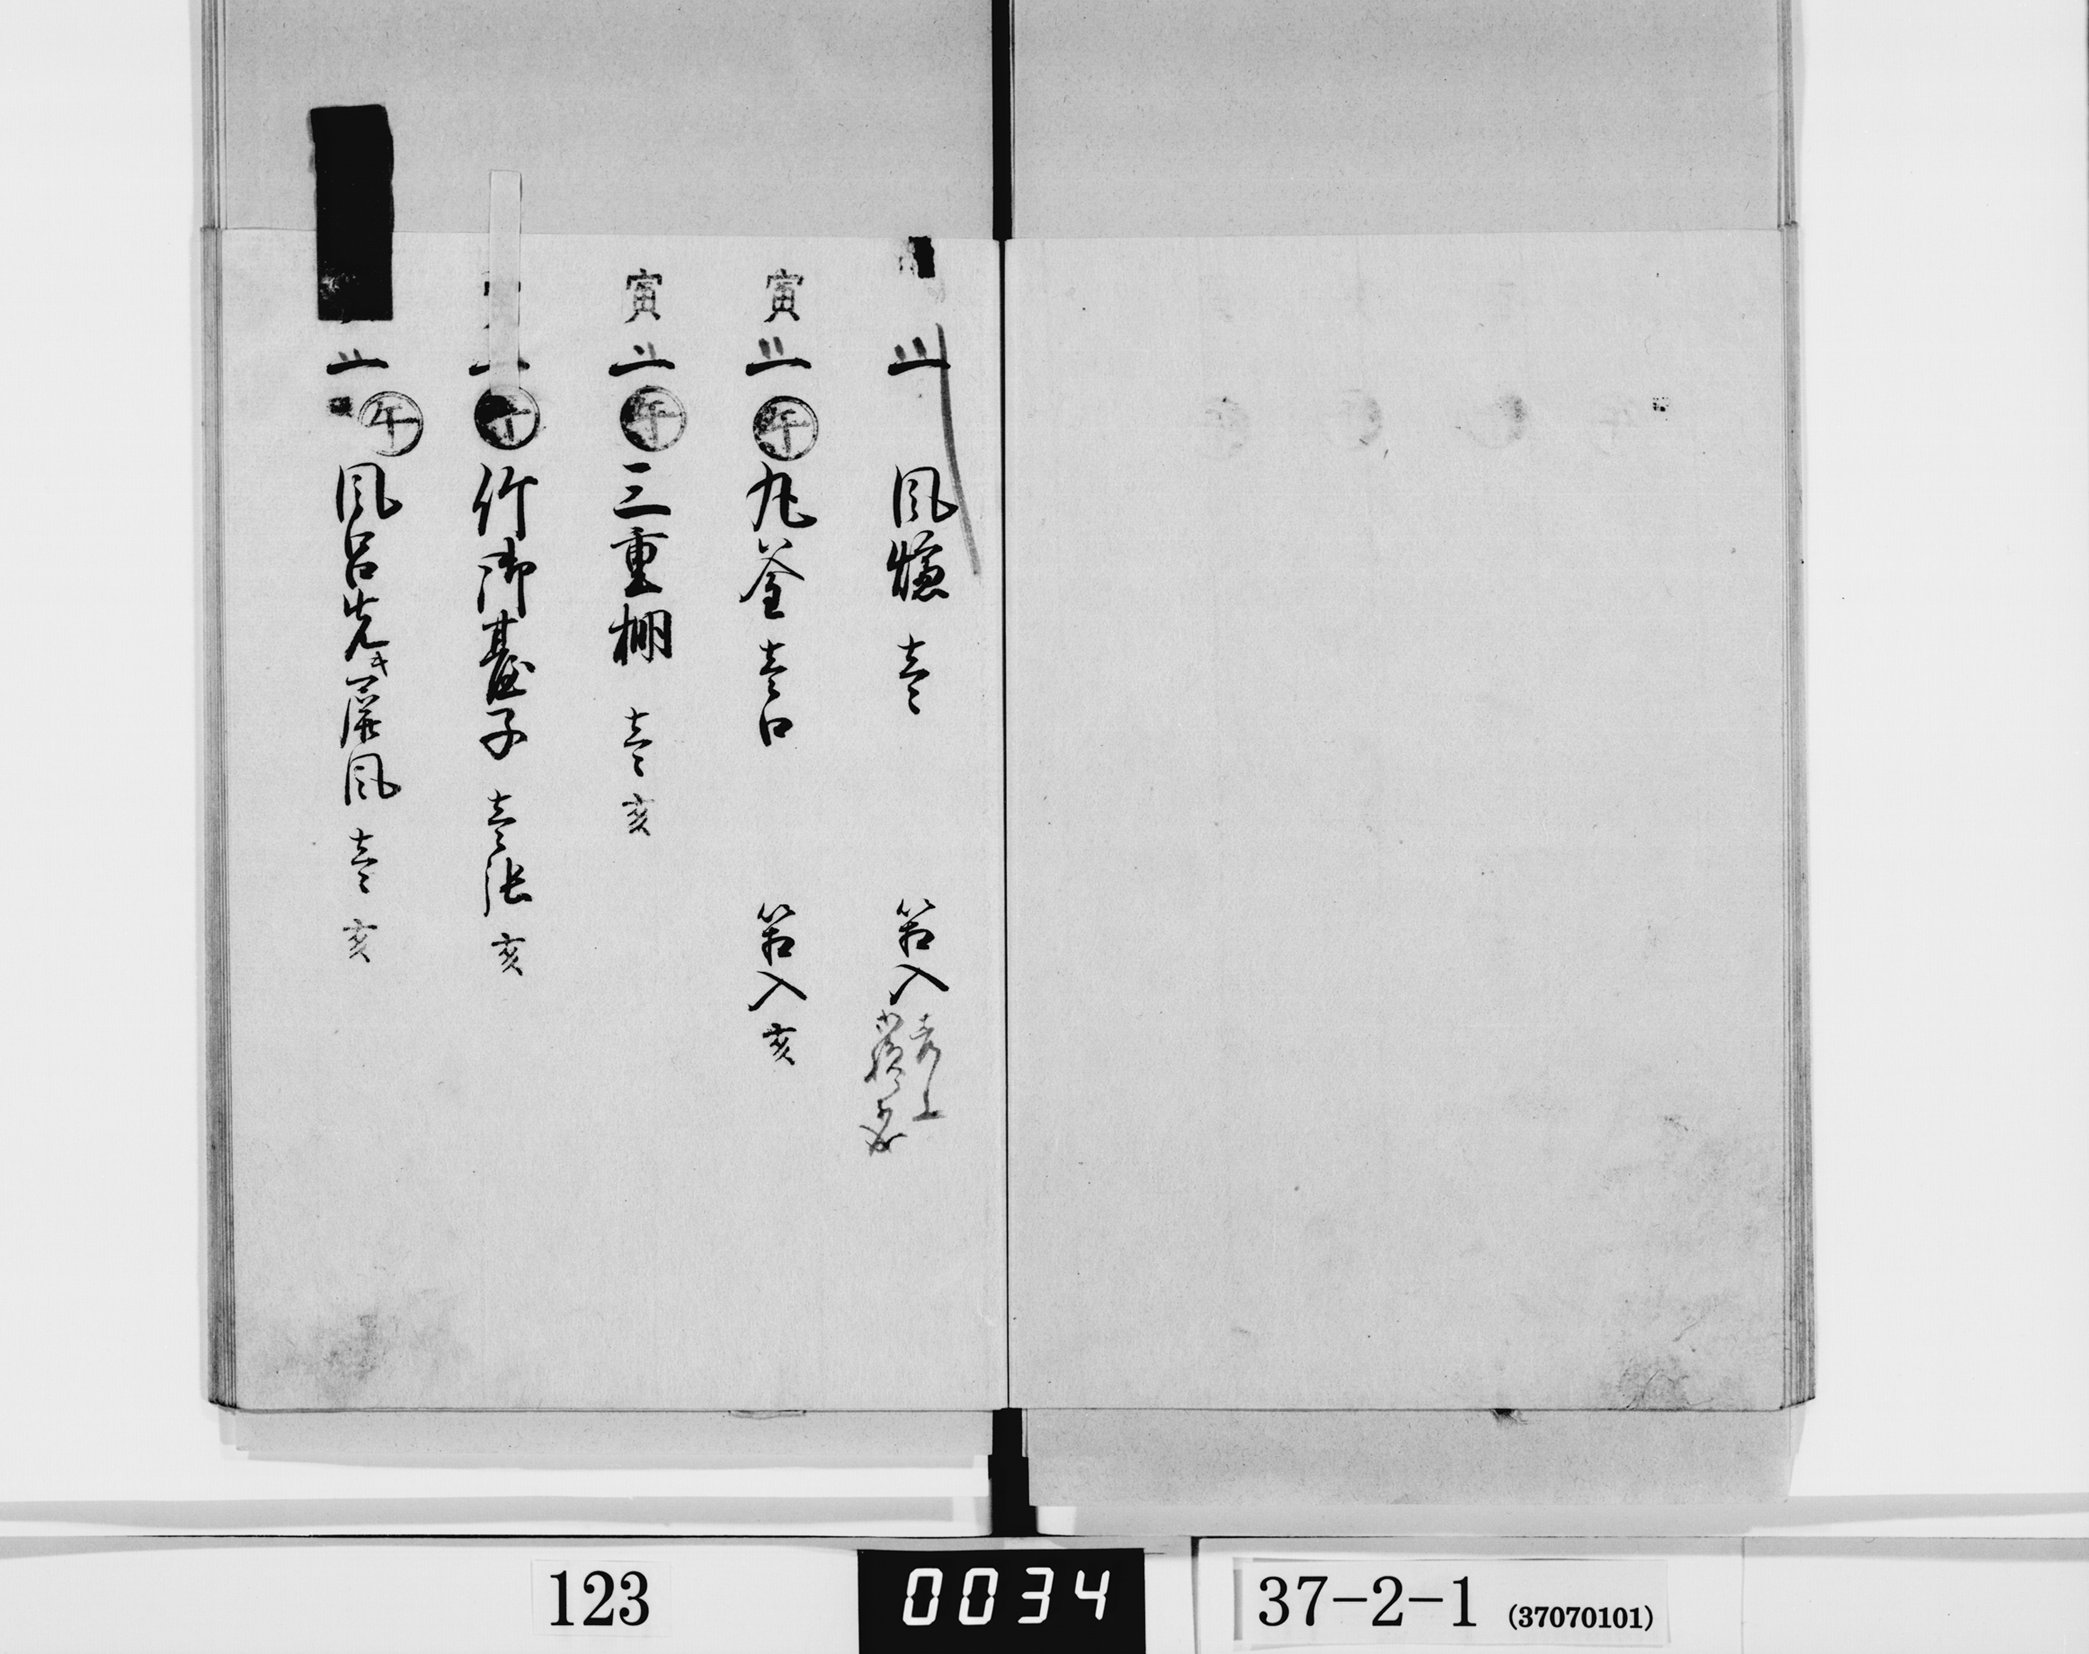 一 風爐 壱 箱入
寅 一 午 丸釜 壱口 箱入 亥
寅 一 午 三重棚 壱 亥
寅 一 午 竹御臺子 壱張 亥
一 午 風呂先キ屏風 壱 亥
123
0034
37-2-1 (37070101)